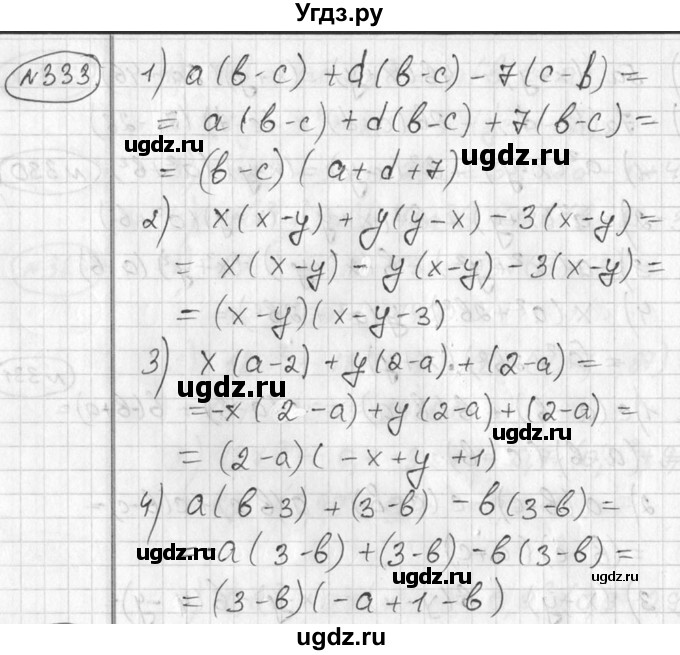 Угдз.ру
№333 1) a(b-c) + d(b-c) - 7(c-b) =
= a(b-c) + d(b-c) + 7(b-c) =
gdz.ru
ugdz.ru
= (b-c)(a+d+7)
2) x(x-y) + y(y-x) - 3(x-y) =
= x(x-y) - y(x-y) - 3(x-y) =
= (x-y)(x-y-3)
3) x(a-2) + y(2-a) + (2-a) =
ugdz.ru
= -x(2-a) + y(2-a) + (2-a) =
ugdz.ru
= (2-a)(-x+y+1)
4) a(b-3) + (3-b) - b(3-b) =
ugdz.ru
= -a(3-b) + (3-b) - b(3-b) =
ugdz.ru
ugdz.ru
= (3-b)(-a+1-b)
ugdz.ru